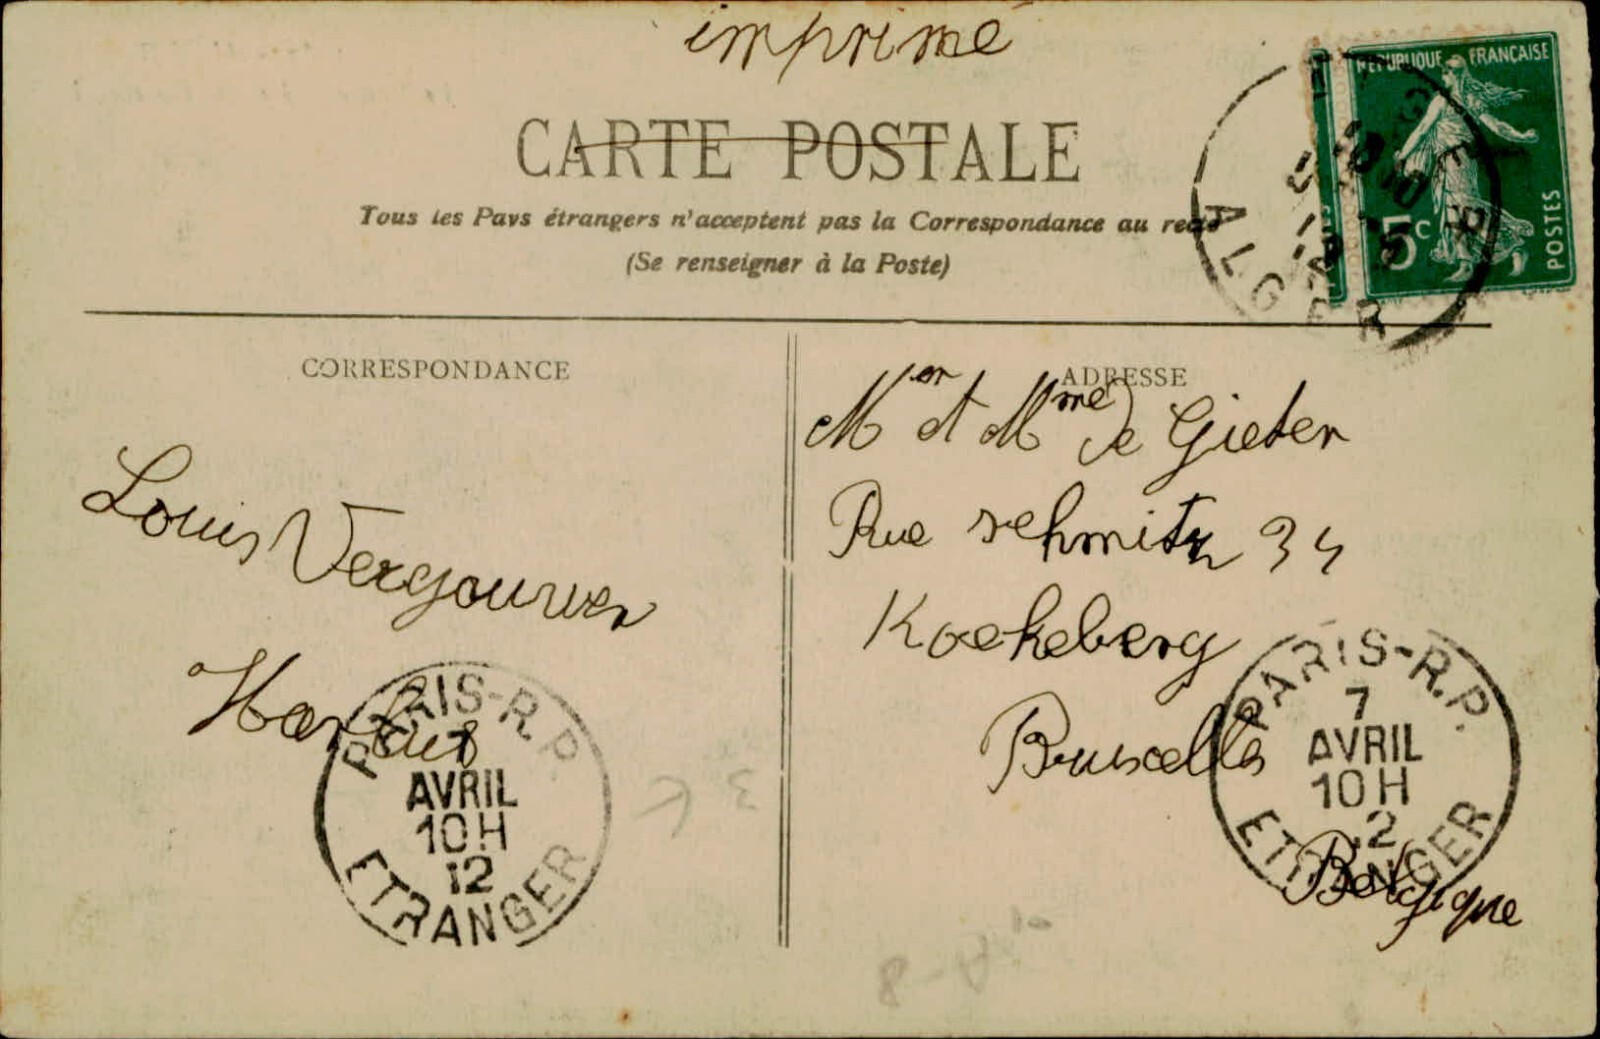 imprimé
CARTE POSTALE
Tous les Pays étrangers n'acceptent pas la Correspondance au recto
(Se renseigner à la Poste)
REPUBLIQUE FRANÇAISE
5c
POSTES
ALGER
CORRESPONDANCE
Louis Vergouwen
ADRESSE
Mr et Mme De Gieter
Rue schmitz 34
Koekelberg
Bruxelles
Belgique
PARIS-R.P.
7
AVRIL
10H
12
ETRANGER
PARIS-R.P.
7
AVRIL
10H
12
ETRANGER